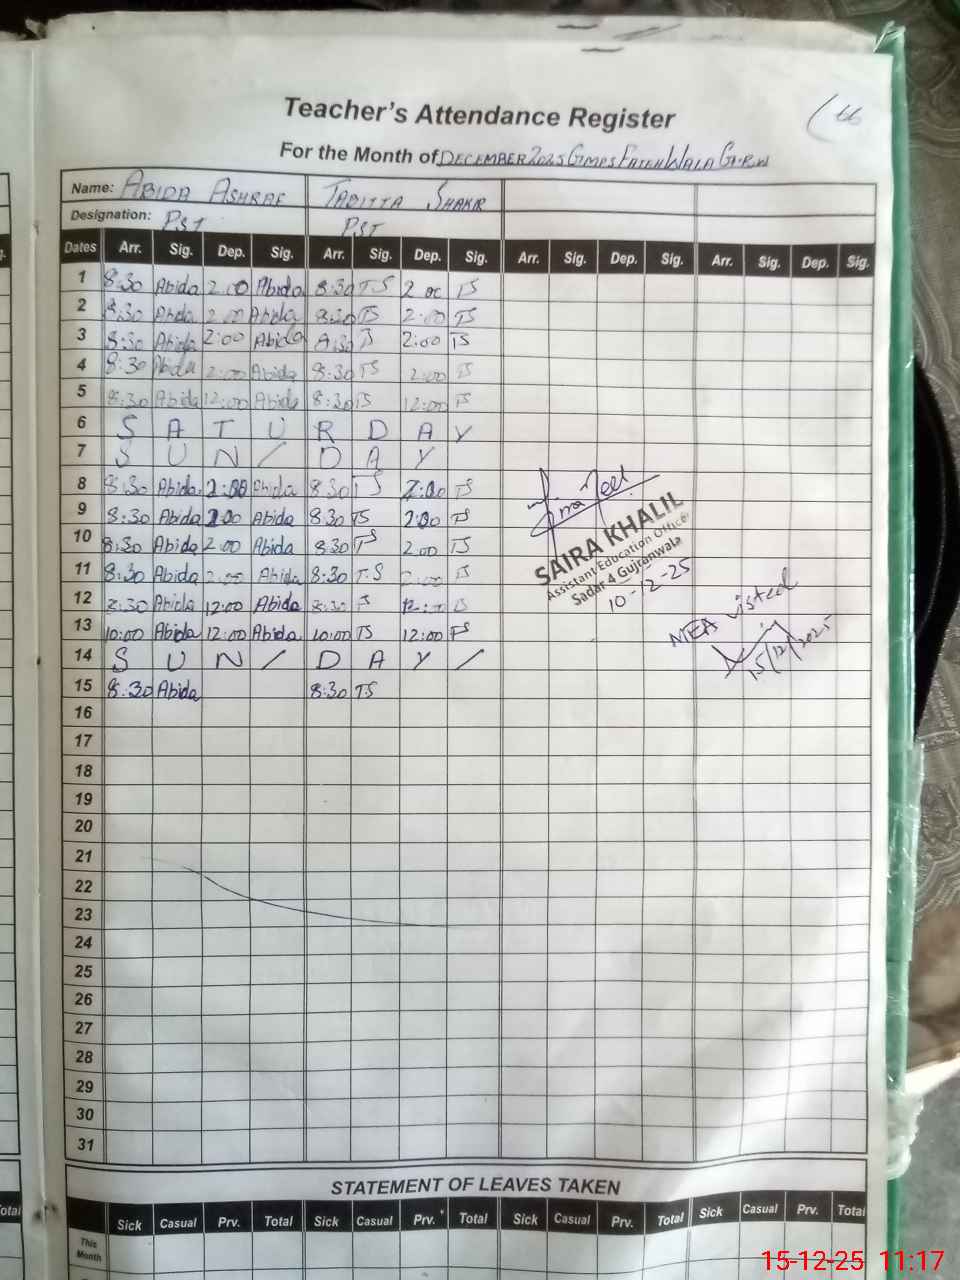 66
Teacher's Attendance Register
For the Month of DECEMBER 2025 GMPS FATEH WALA G.R.W
Name: ABIDA ASHRAF TABITTA SHAKIR
Designation: PST PST
Dates Arr. Sig. Dep. Sig. Arr. Sig. Dep. Sig. Arr. Sig. Dep. Sig. Arr. Sig. Dep. Sig.
1 8:30 Abida 2.00 Abida 8:30 TS 2 00 TS
2 8:30 Abida 2:00 Abida 8:30 TS 2:00 TS
3 8:30 Abida 2:00 Abida 8:30 TS 2:00 TS
4 8:30 Abida 2:00 Abida 8:30 TS 2:00 TS
5 8:30 Abida 12:00 Abida 8:30 TS 12:00 TS
6 S A T U R D A Y
7 S U N / D A Y
8 8:30 Abida 2:00 Abida 8:30 TS 2:00 TS
9 8:30 Abida 2:00 Abida 8:30 TS 2:00 TS
10 8:30 Abida 2:00 Abida 8:30 TS 2:00 TS
11 8:30 Abida 2:00 Abida 8:30 T.S 2:00 TS
12 8:30 Abida 12:00 Abida 8:30 TS 12:00 TS
13 10:00 Abida 12:00 Abida 10:00 TS 12:00 TS
14 S U N / D A Y /
15 8:30 Abida 8:30 TS
SAIRA KHALIL
Assistant Education Officer
Sadar 4 Gujranwala
10-12-25
MEA visted
15/12/2025
16
17
18
19
20
21
22
23
24
25
26
27
28
29
30
31
STATEMENT OF LEAVES TAKEN
Sick Casual Prv. Total Sick Casual Prv. Total Sick Casual Prv. Total Sick Casual Prv. Total
This
Month
15-12-25 11:17